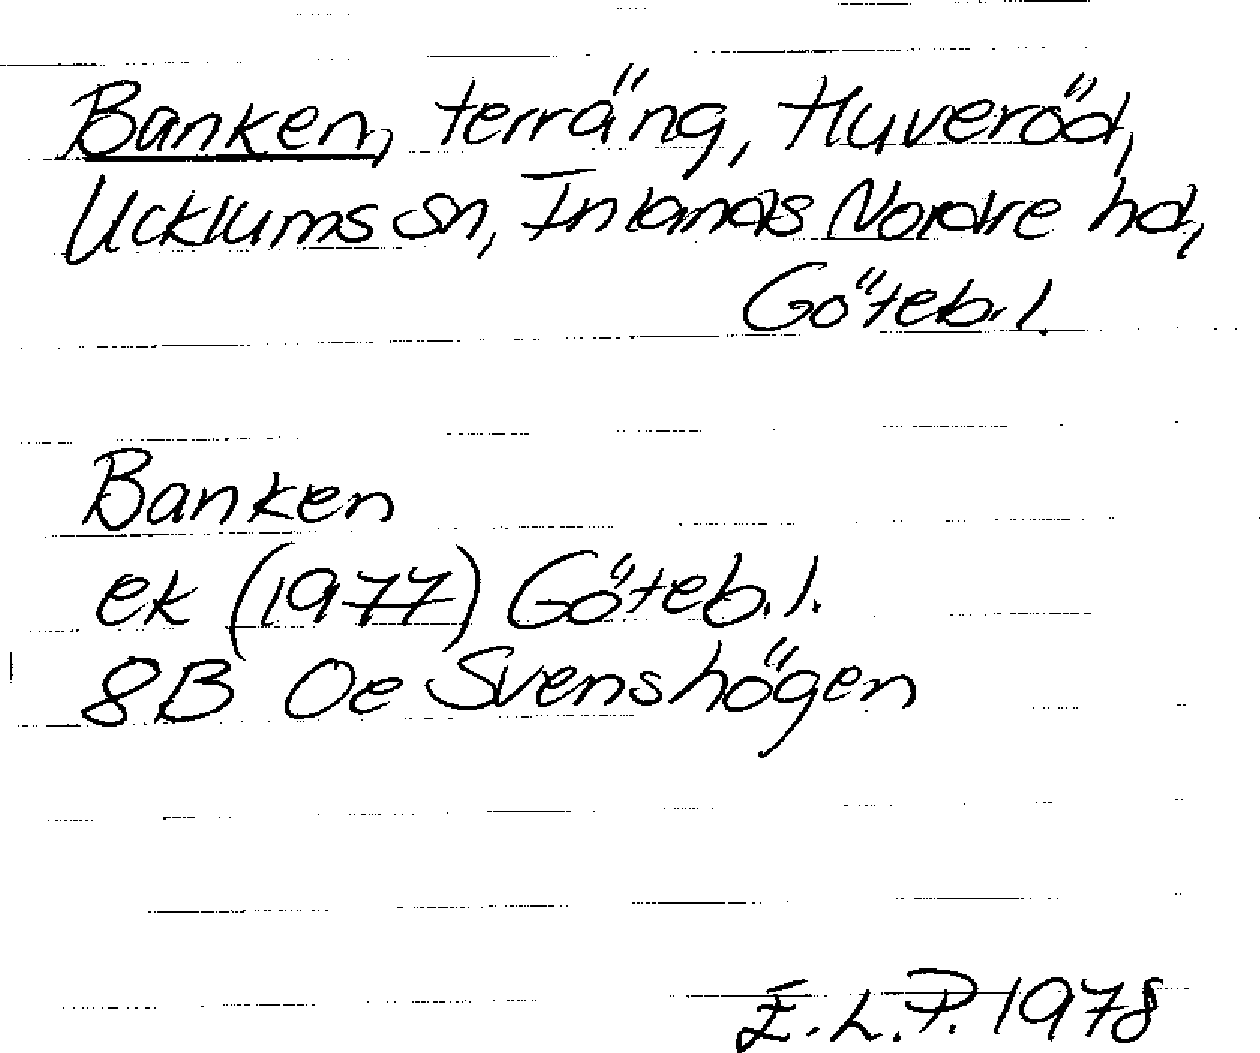 Banken, terräng, Huveröd,
Ucklums sn, Inlands Nordre hd,
Göteb. l.
Banken
ek (1977) Göteb. l.
8B 0e Svenshögen
E. L. P. 1978